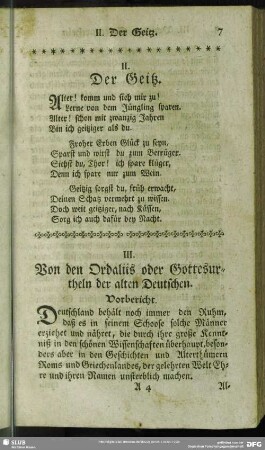 II. Der Geitz. 7
II.
Der Geitz.
Alter! komm und sieh mir zu!
Lerne von dem Jüngling sparen.
Alter! schon mit zwanzig Jahren
Bin ich geitziger als du.
Froher Erben Glück zu seyn,
Sparst und wirst du zum Betrüger.
Siehst du, Thor! ich spare klüger,
Denn ich spare nur zum Wein.
Geitzig sorgst du, früh erwacht,
Deinen Schatz vermehrt zu wissen.
Doch weit geitziger, nach Küssen,
Sorg ich auch dafür bey Nacht.
III.
Von den Ordaliis oder Gottesur-
theln der alten Deutschen.
Vorbericht.
Deutschland behält noch immer den Ruhm,
daß es in seinem Schoose solche Männer
erziehet und nähret, die durch ihre große Kennt-
niß in den schönen Wissenschaften überhaupt, beson-
ders aber in den Geschichten und Alterthümern
Roms und Griechenlandes, der gelehrten Welt Eh-
re und ihren Namen unsterblich machen.
A 4 All-
SLUB
DFG